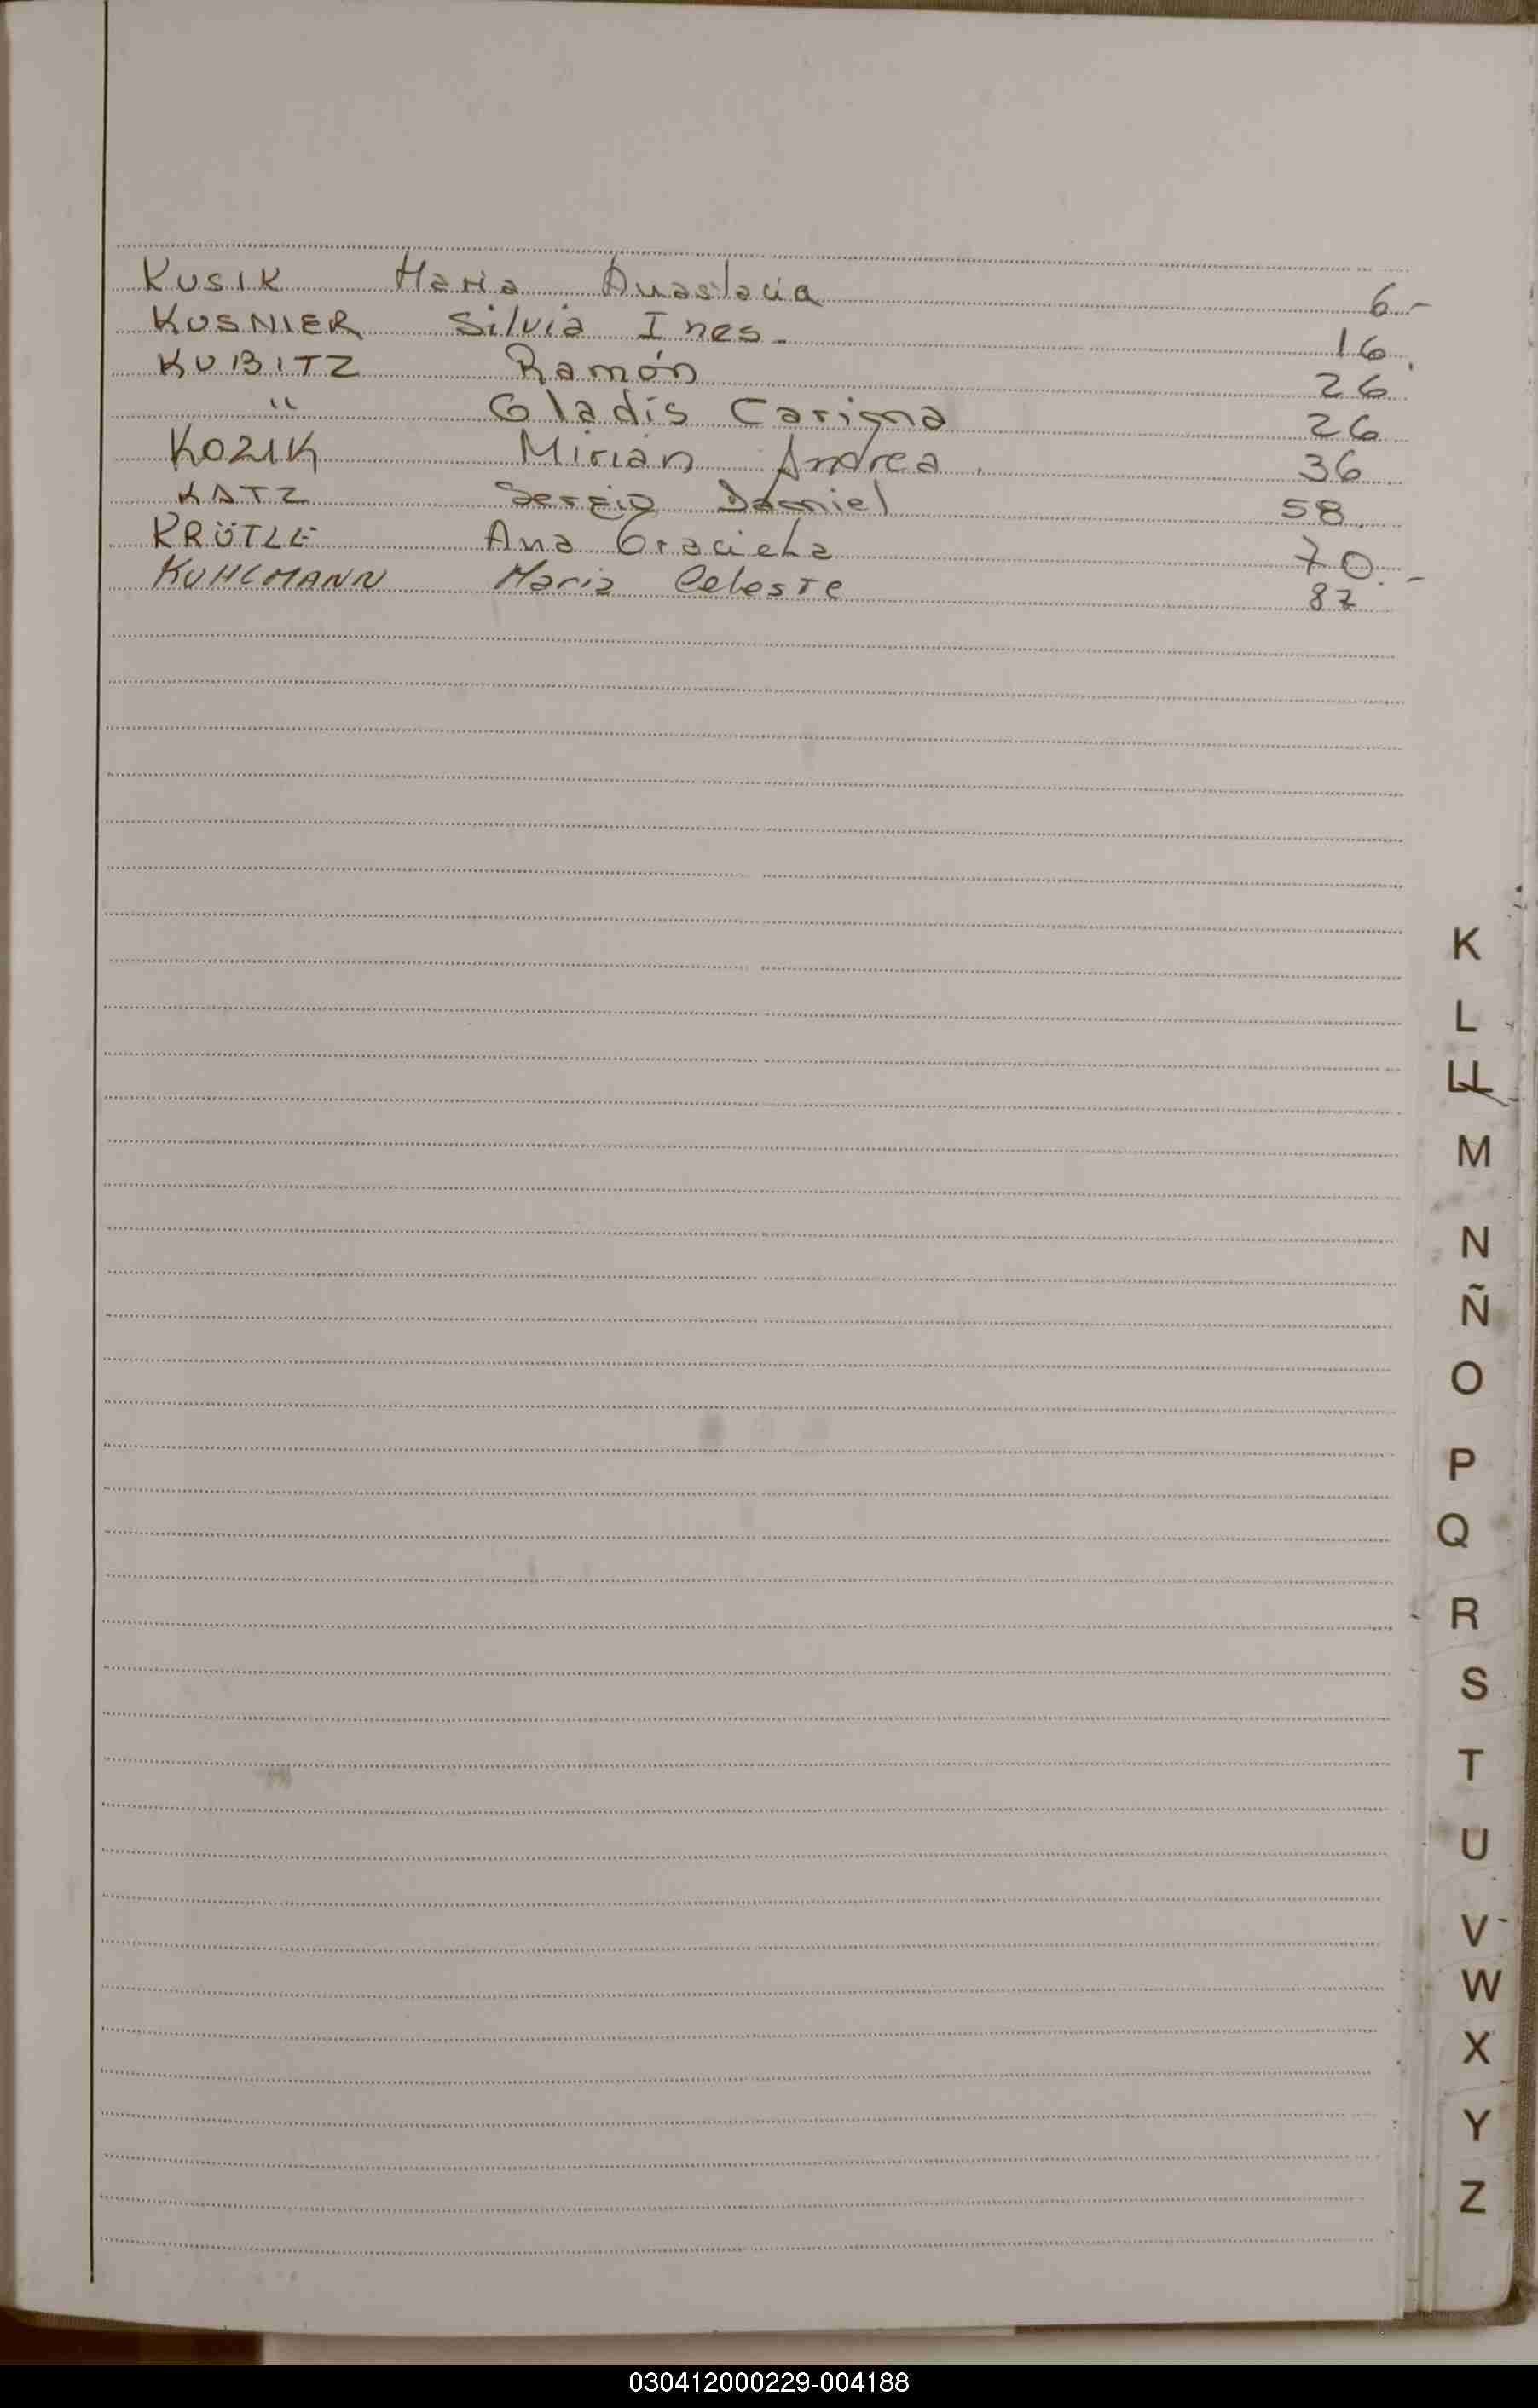 KUSIK Maria Anastacia 6.-
KUSNIER Silvia Ines.- 16.
KUBITZ Ramón 26.
" Gladis Carigna 26
KOZIK Mirian Andrea. 36
KATZ Sergio Daniel 58.
KRÜTLE Ana Graciela 70.-
KUHLMANN Maria Celeste 87
K
L
LL
M
N
Ñ
O
P
Q
R
S
T
U
V
W
X
Y
Z
030412000229-004188